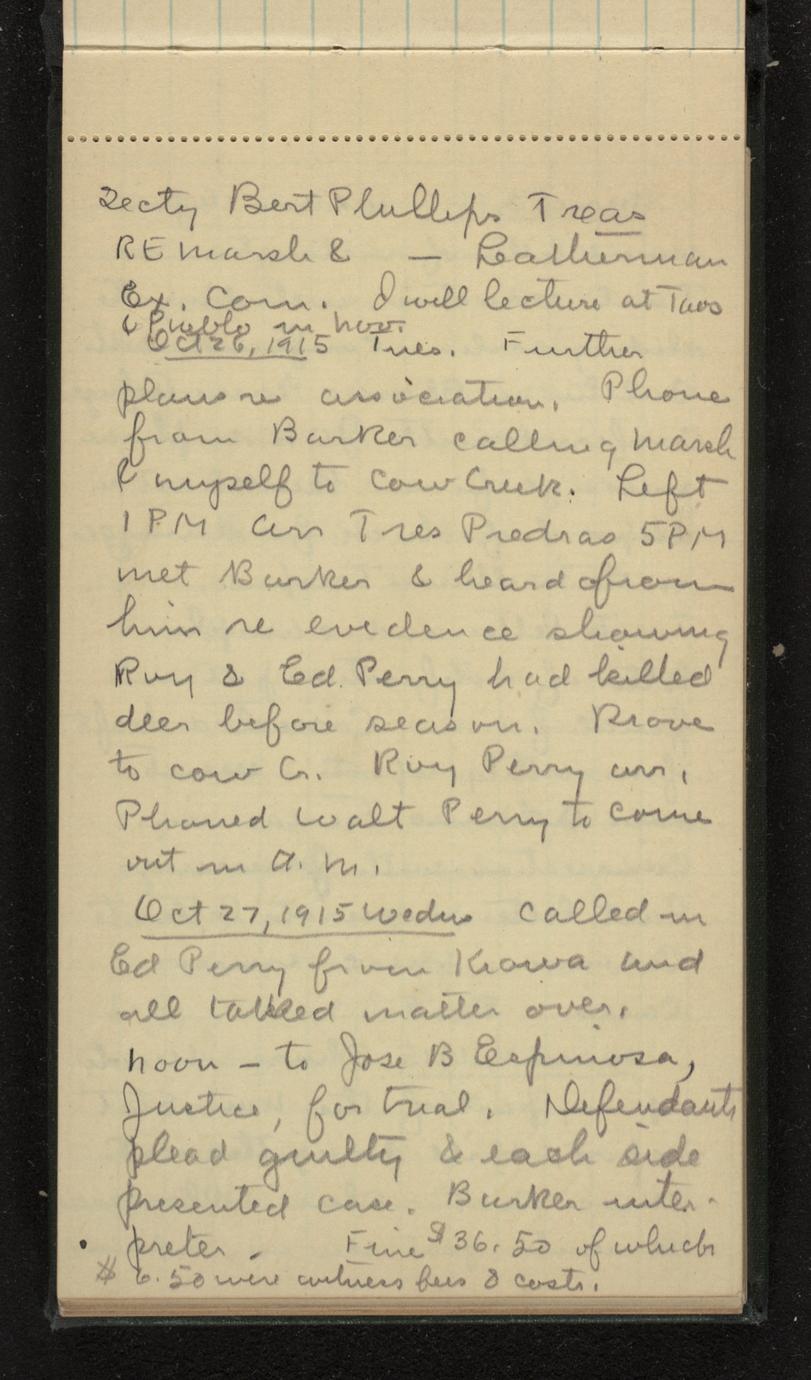 Secty Bert Phillips Treas
RE Marsh & — Leatherman
Ex. Com. I will lecture at Taos
& Pueblo in Nov.
Oct 26, 1915 Tues. Further
plans re association. Phone
from Barker calling Marsh
& myself to Cow Creek. Left
1 PM arr Tres Piedras 5PM
met Barker & heard from
him re evidence showing
Roy & Ed. Perry had killed
deer before season. Drove
to Cow Cr. Roy Perry arr.
Phoned Walt Perry to come
out in A.M.
Oct 27, 1915 Wedns Called in
Ed Perry from Kiowa and
all talked matter over.
Noon – to Jose B Espinosa,
Justice, for trial. Defendants
plead guilty & each side
presented case. Barker inter-
preter. Fine $36.50 of which
$ 6.50 were witness fees & costs.